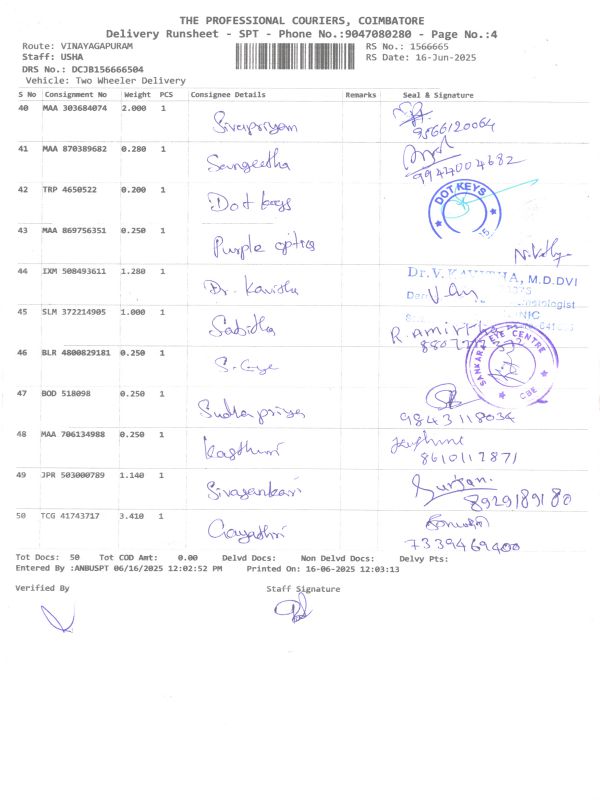 THE PROFESSIONAL COURIERS, COIMBATORE
Delivery Runsheet - SPT - Phone No.:9047080280 - Page No.:4
Route: VINAYAGAPURAM RS No.: 1566665
Staff: USHA RS Date: 16-Jun-2025
DRS No.: DCJB156666504
Vehicle: Two Wheeler Delivery
S No Consignment No Weight PCS Consignee Details Remarks Seal & Signature
40 MAA 303684074 2.000 1 Sivapriyam 9566120064
41 MAA 870389682 0.280 1 Sangeetha 9944004682
42 TRP 4650522 0.200 1 Dot keys DOT KEYS
43 MAA 869756351 0.250 1 Purple optics
44 IXM 508493611 1.280 1 Dr. Kavitha Dr. V. KAVITHA, M.D.DVL
45 SLM 372214905 1.000 1 Sabitha
46 BLR 4800829181 0.250 1 S. Eye SANKARA EYE CENTRE CBE
47 BOD 518098 0.250 1 Sudhapriya 9843118034
48 MAA 706134988 0.250 1 Kasthuri 8610117871
49 JPR 503000789 1.140 1 Sivasankari 8929189180
50 TCG 41743717 3.410 1 Gayathri 7339469400
Tot Docs: 50 Tot COD Amt: 0.00 Delvd Docs: Non Delvd Docs: Delvy Pts:
Entered By :ANBUSPT 06/16/2025 12:02:52 PM Printed On: 16-06-2025 12:03:13
Verified By Staff Signature